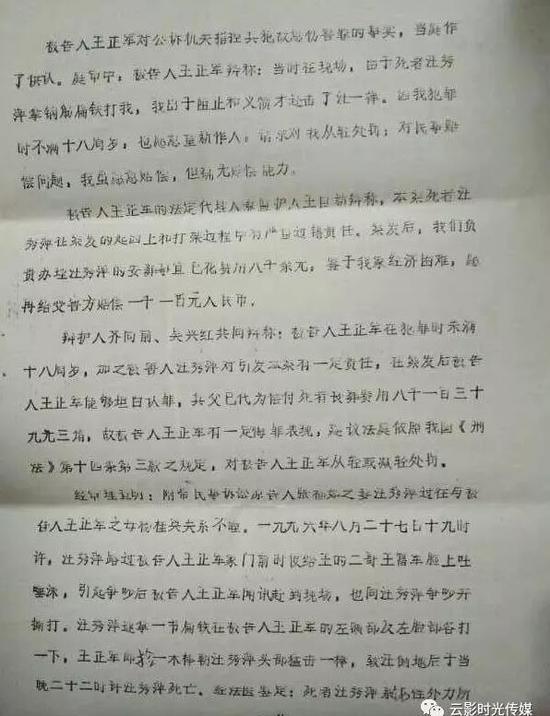 被告人王正军对公诉机关指控其犯故意伤害罪的事实，当庭作
了供认。庭审中，被告人王正军辩称：当时在现场，由于死者汪秀
萍拿钢筋扁铁打我，我出于阻止和义愤才还击了汪一棒。当我犯罪
时不满十八周岁，也是忿
请求对我从轻处罚；对民事赔
偿问题，我虽愿意赔偿，但确无赔偿能力。
被告人王正军的法定代理人兼监护人王自新辩称，本案死者汪
秀萍在案发的起因上和打架过程中有严重过错责任。案发后，我们负
责办理汪秀萍的安葬事宜已花费用八千余元，鉴于我家经济困难，愿
再给受害方赔偿一千一百元人民币。
辩护人齐向前、吴兴红共同辩称：被告人王正军在犯罪时未满
十八周岁，加之被害人汪秀萍对引发本案有一定责任，在案发后被告
人王正军能够坦白认罪，其父已代为偿付死者丧葬费用八千一百三十
九元三角，故被告人王正军有一定悔罪表现，建议法庭依照我国《刑
法》第十四条第三款之规定，对被告人王正军从轻或减轻处罚。
经审理查明：附带民事诉讼原告人张福如之妻汪秀萍过往与被
告人王正军之母杨桂英关系不睦。一九九六年八月二十七日十九时
许，汪秀萍路过被告人王正军家门前时仅给王的二哥王富军脸上吐
唾沫，引起争吵后被告人王正军闻讯赶到现场，也同汪秀萍争吵并
撕打。汪秀萍遂拿一节扁铁在被告人王正军的左额部及左脸部各打
一下，王正军即拾一木棒朝汪秀萍头部猛击一棒，致汪倒地后于当
晚二十二时许汪秀萍死亡。经法医鉴定：死者汪秀萍系 外力所
云影时光传媒